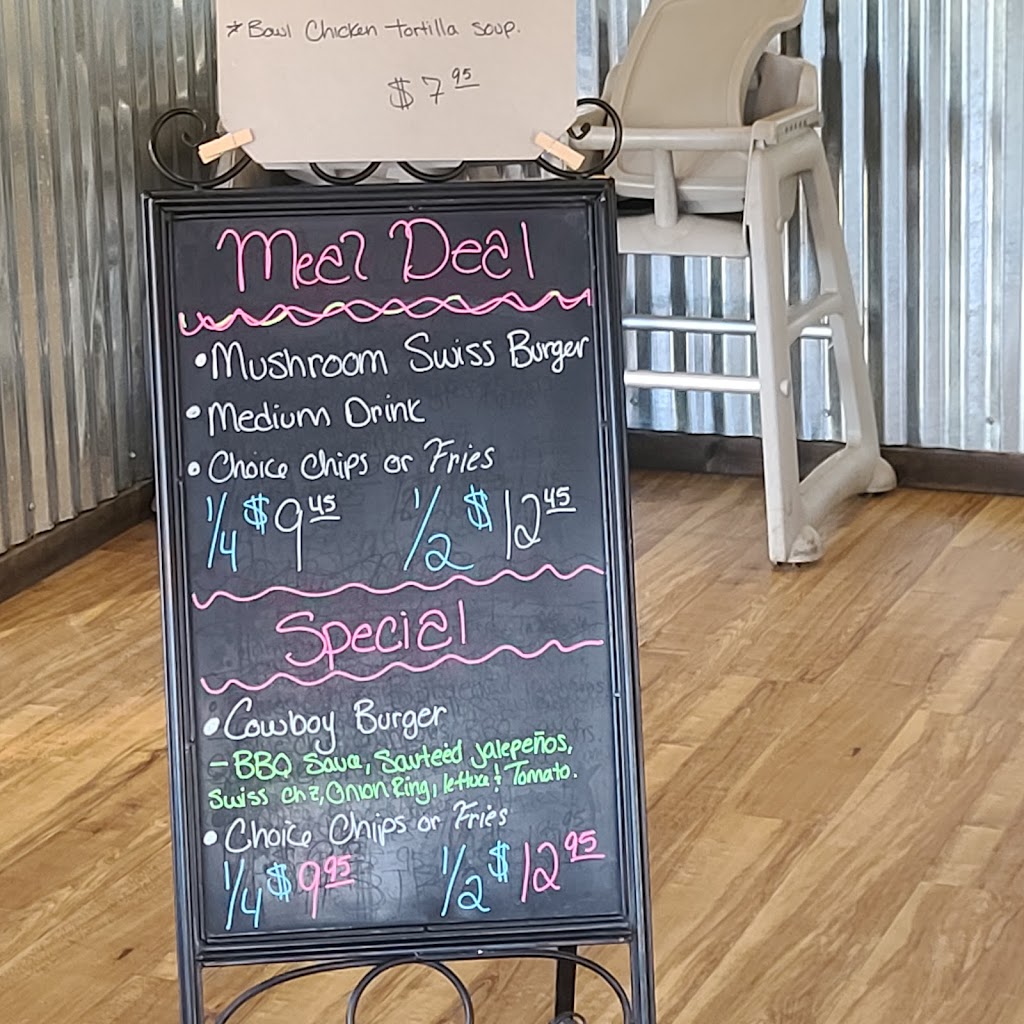 * Bowl Chicken tortilla soup.
$7 95
Meal Deal
• Mushroom Swiss Burger
• Medium Drink
• Choice Chips or Fries
1/4 $9 45 1/2 $12 45
Special
• Cowboy Burger
- BBQ Sauce, Sauteéd jalepeños,
Swiss chz, Onion Ring, lettuce & Tomato.
• Choice Chips or Fries
1/4 $9 95 1/2 $12 95